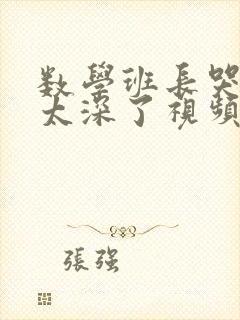 数學班長哭
太深了視頻
張強